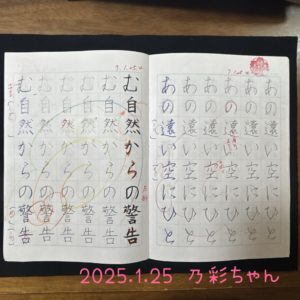 あの遠い空にひと
あの遠い空にひと
あの遠い空にひと
あの遠い空にひと
あの遠い空にひと
あの遠い空にひと
む自然からの警告
む自然からの警告
む自然からの警告
む自然からの警告
む自然からの警告
む自然からの警告
2025.1.25 乃彩ちゃん